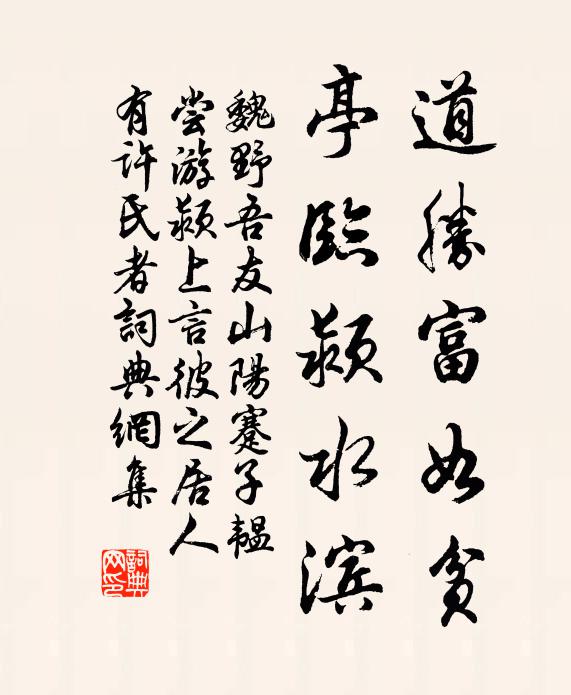 道勝富如貧
亭臨潁水濱
魏野吾友山陽蹇子韞
尝游潁上言彼之居人
有許氏者詞典網集
詞典
网印